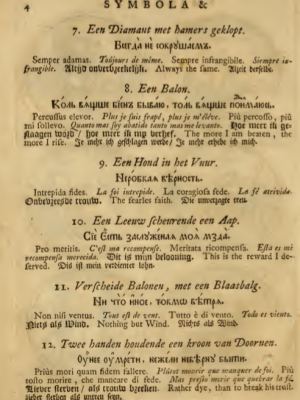 4 SYMBOLA &
7. Een Diamant met hamers geklopt.
Semper adamas. Tousjours de même. Sempre infrangibile. Siempre in-
frangible. Altijd onverbreekelijk. Always the same. Alzeit derselbe.
8. Een Balon.
Percussus elevor. Plus je suis frapé, plus je m'éléve. Più percosso, più
mi sollevo. Quanto mas soy abatido tanto mas me levanto. Hoe meer ik ge-
slaagen word / hoe meer ik mp verhef. The more I am beaten, the
more I rise. Je mehr ich geschlagen werde / Je mehr erhebe ich mich.
9. Een Houd in het Vuur.
Intrepida fides. La foi intrepide. La coragiosa fede. La fé atrivida.
Onbevreesde trouw. The fearless faith. Die unverzagte treu.
10. Een Leeuw scheurende een Aap.
Pro meritis. C'est ma recompense. Meritata ricompensa. Esta es mi
recompensa merecida. Dit is mijn belooning. This is the reward I de-
served. Das ist mein verdienter lohn.
11. Verscheide Balonen, met een Blaasbalg.
Non nisi ventus. Tout est de vent. Tutto è di vento. Todo es viento.
Niets als Wind. Nothing but Wind. Nichts als Wind.
12. Twee handen houdende een kroon van Doornen.
Priùs mori quam fidem fallere. Plûtost mourir que manquer de foi. Più
tosto morire, che mancare di fede. Mas presto morir que quebrar la fé.
Liever sterven / als trouw breeken. Rather dye, than to break his trust.